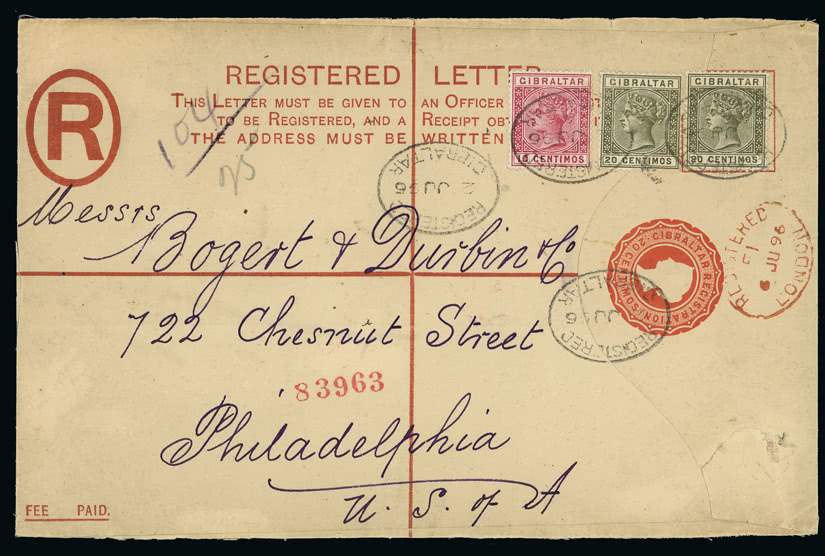 REGISTERED LETTER
THIS LETTER MUST BE GIVEN TO AN OFFICER
TO BE REGISTERED, AND A RECEIPT
THE ADDRESS MUST BE WRITTEN
R
104
GIBRALTAR
10 CENTIMOS
GIBRALTAR
20 CENTIMOS
GIBRALTAR
20 CENTIMOS
REGISTERED
2 JU 96
GIBRALTAR
Messrs
Bogert & Durbin & Co
722 Chesnut Street
Philadelphia
U. S. of A
83963
GIBRALTAR REGISTRATION
20 CENTIMOS
REGISTERED
GIBRALTAR
REGISTERED
JU 96
LONDON
FEE PAID.